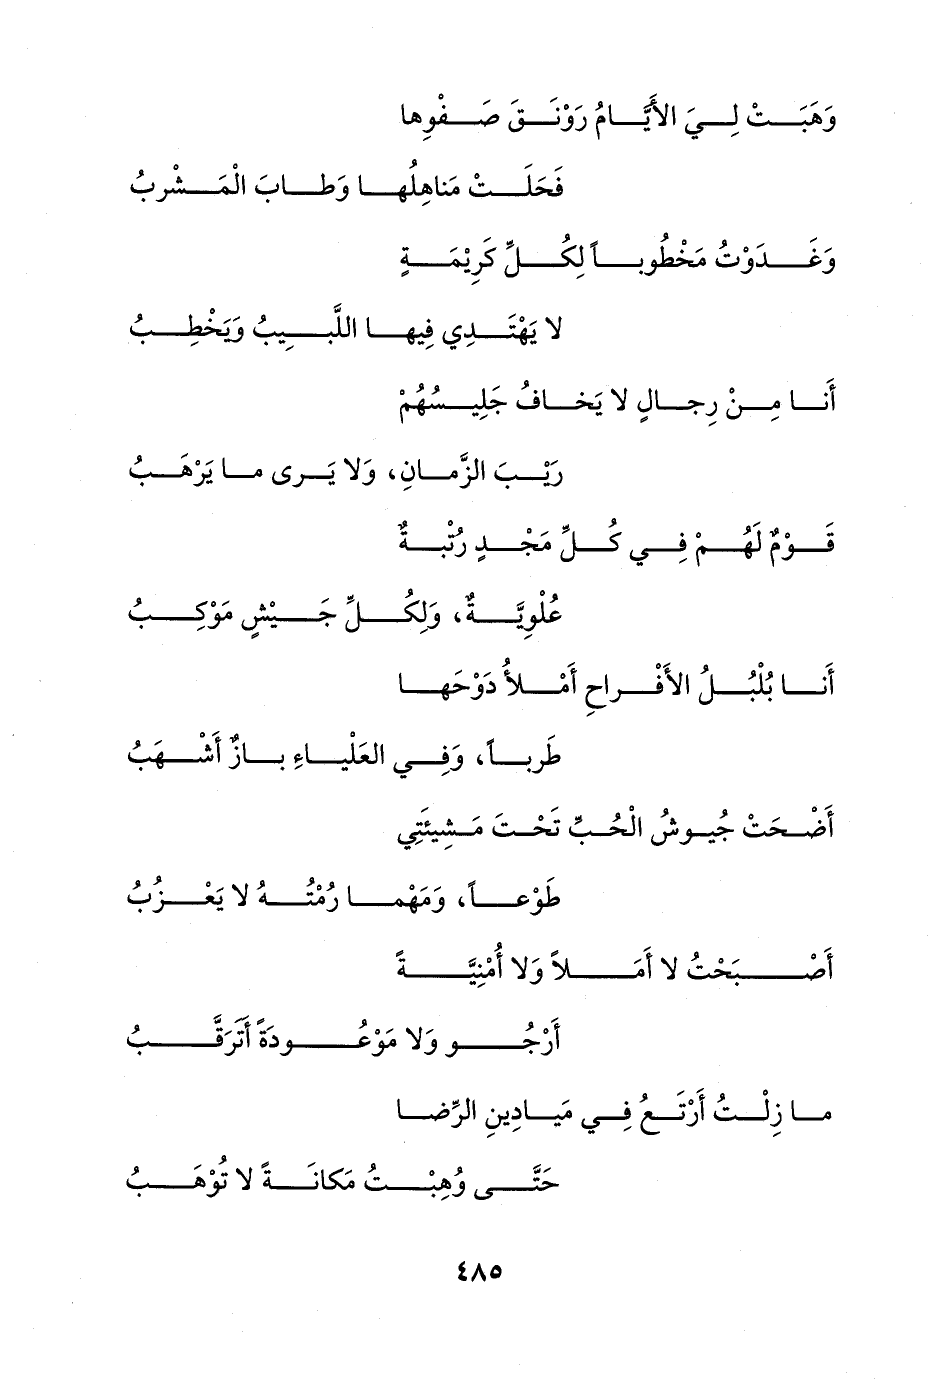 وَهَبَتْ لِيَ الأَيَّامُ رَوْنَقَ صَفْوِها
فَحَلَتْ مَناهِلُها وَطابَ الْمَشْربُ
وَغَدَوْتُ مَخْطُوباً لِكُلِّ كَرِيْمَةٍ
لا يَهْتَدِي فِيها اللَّبِيبُ وَيَخْطِبُ
أَنا مِنْ رِجالٍ لا يَخافُ جَلِيسُهُمْ
رَيْبَ الزَّمانِ، وَلا يَرى ما يَرْهَبُ
قَوْمٌ لَهُمْ فِي كُلِّ مَجْدٍ رُتْبةٌ
عُلْوِيَّةٌ، وَلِكُلِّ جَيْشٍ مَوْكِبُ
أَنا بُلْبُلُ الأَفْراحِ أَمْلأُ دَوْحَها
طَرباً، وَفِي العَلْياءِ بازٌ أَشْهَبُ
أَضْحَتْ جُيوشُ الْحُبِّ تَحْتَ مَشِيئَتِي
طَوْعاً، وَمَهْما رُمْتُهُ لا يَعْزُبُ
أَصْبَحْتُ لا أَمَلاً وَلا أُمْنِيَّةً
أَرْجُو وَلا مَوْعُودَةً أَتَرَقَّبُ
ما زِلْتُ أَرْتَعُ فِي مَيادِينِ الرِّضا
حَتَّى وُهِبْتُ مَكانَةً لا تُوْهَبُ
٤٨٥